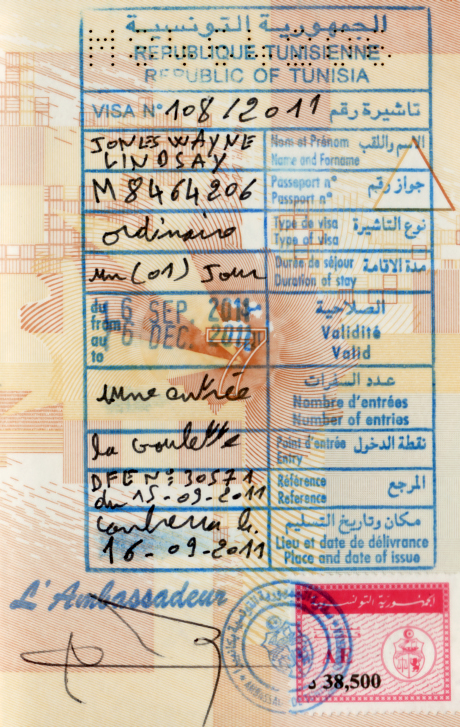 الجمهورية التونسية
REPUBLIQUE TUNISIENNE
REPUBLIC OF TUNISIA
VISA N° 108/2011 تاشيرة رقم
JONES WAYNE
LINDSAY
الإسم واللقب
Nom et Prénom
Name and Forname
M8464206
جواز رقم
Passeport n°
Passport n°
ordinaire
نوع التاشيرة
Type de visa
Type of visa
un (01) Jour
مدة الاقامة
Durée de séjour
Duration of stay
du 16 SEP 2011
from
au 16 DEC 2011
to
الصلاحية
Validité
Valid
une entrée
عدد السفرات
Nombre d'entrées
Number of entries
la Goulette
نقطة الدخول
Point d'entrée
Entry
DFE N°: 30571
du 15-09-2011
المرجع
Référence
Reference
Canberra le
16-09-2011
مكان وتاريخ التسليم
Lieu et date de délivrance
Place and date of issue
L'Ambassadeur
الجمهورية التونسية
A.E
38,500